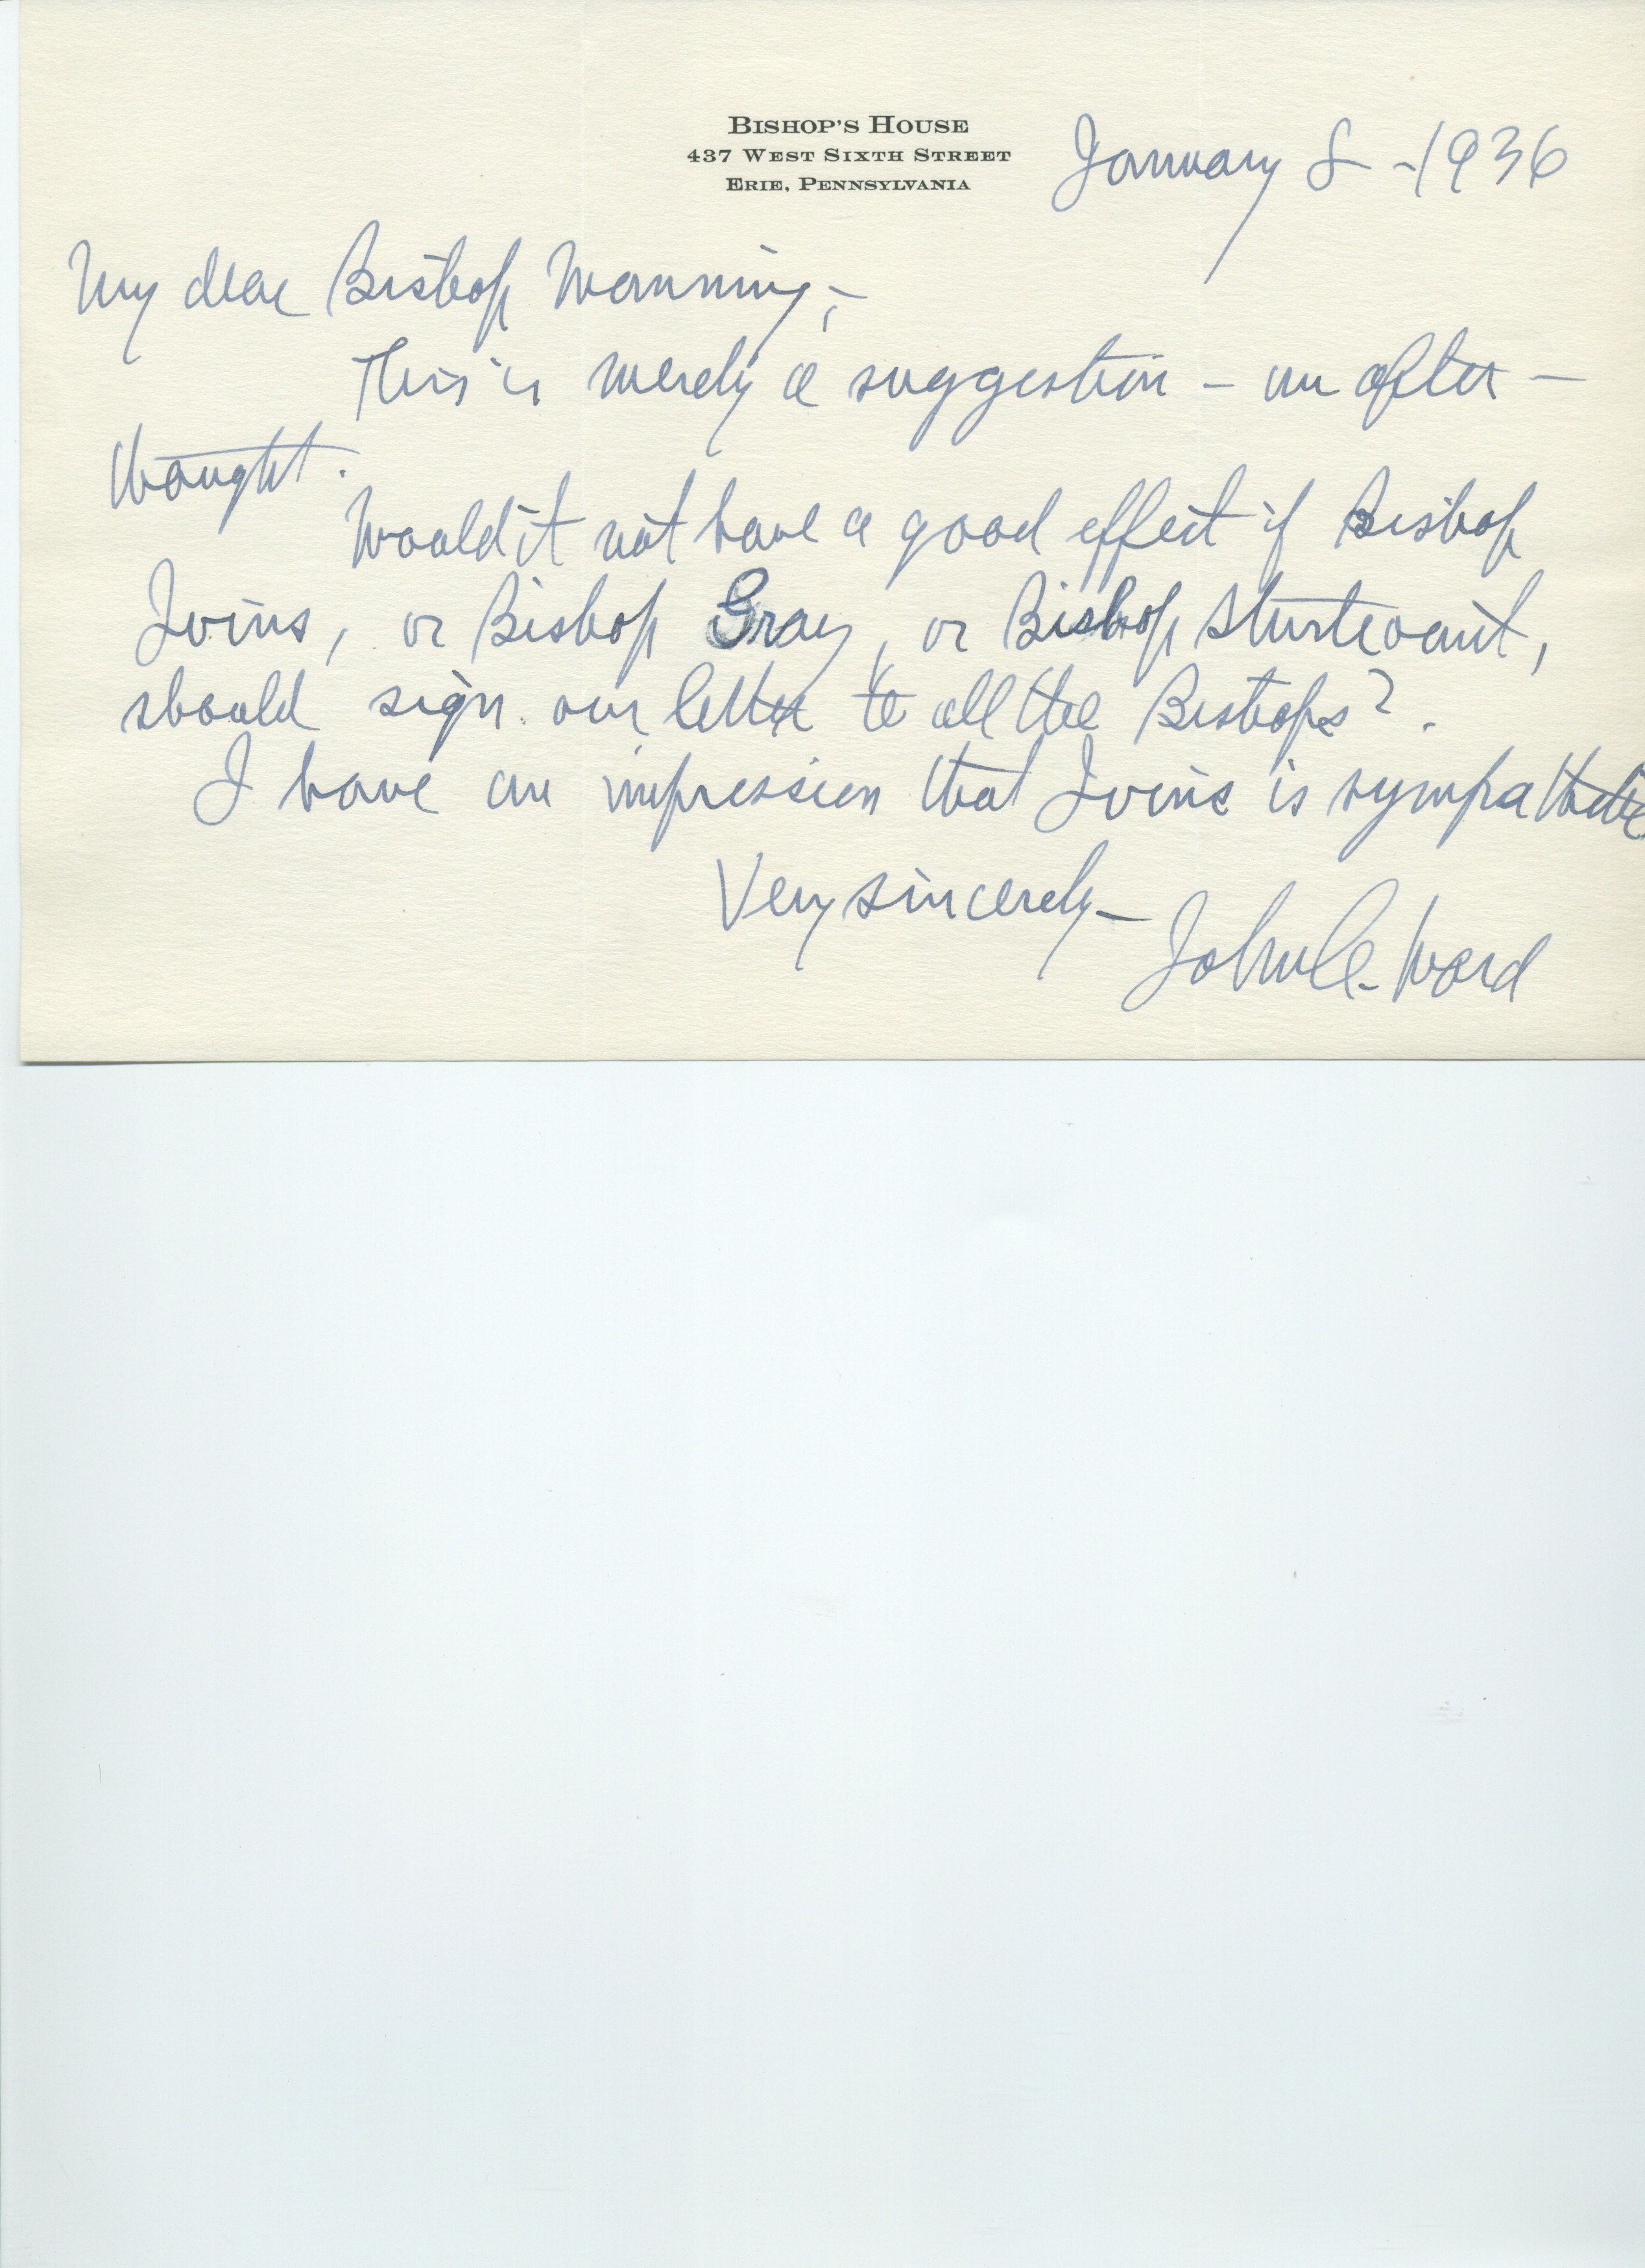 BISHOP'S HOUSE
437 WEST SIXTH STREET
ERIE, PENNSYLVANIA
January 8 - 1936
My dear Bishop Manning,-
This is merely a suggestion - an after -
thought.
Would it not have a good effect if Bishop
Ivins, or Bishop Gray, or Bishop Sturtevant,
should sign our letter to all the Bishops?.
I have an impression that Ivins is sympathetic
Very sincerely-
John C. Ward